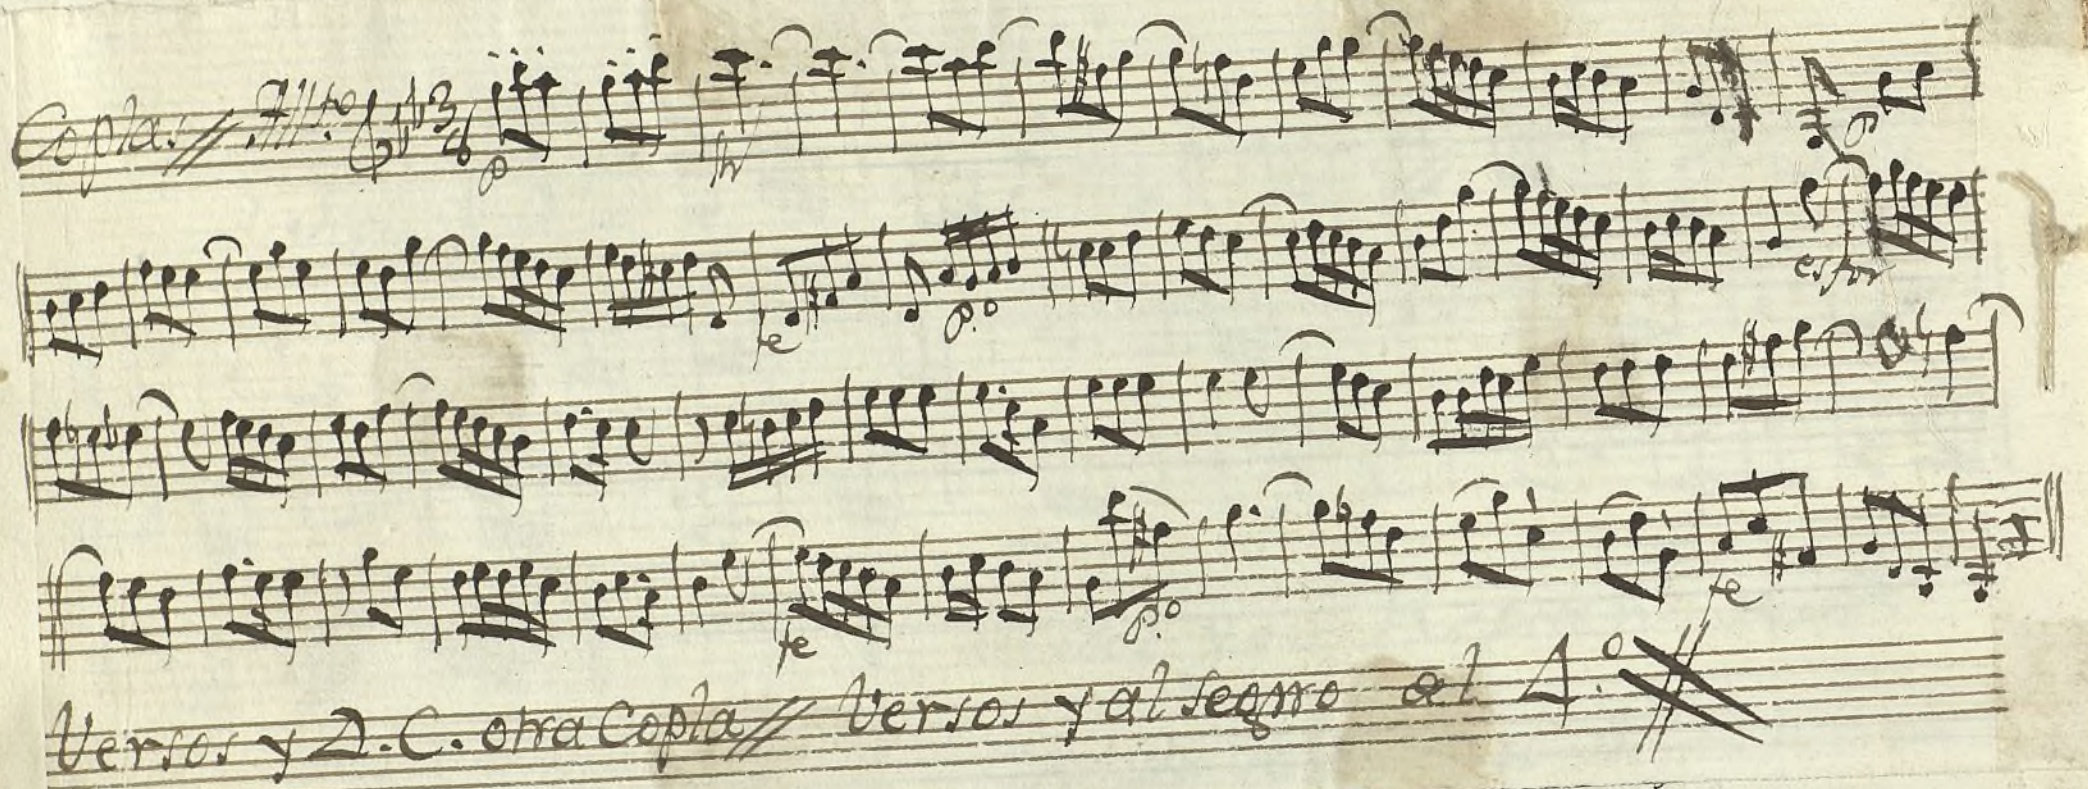 Copla.// All.to 3 8
P fe P
fe P.o esfor
fe P.o fe
Versos y D.C. otra Copla// Versos y al segno al A.o